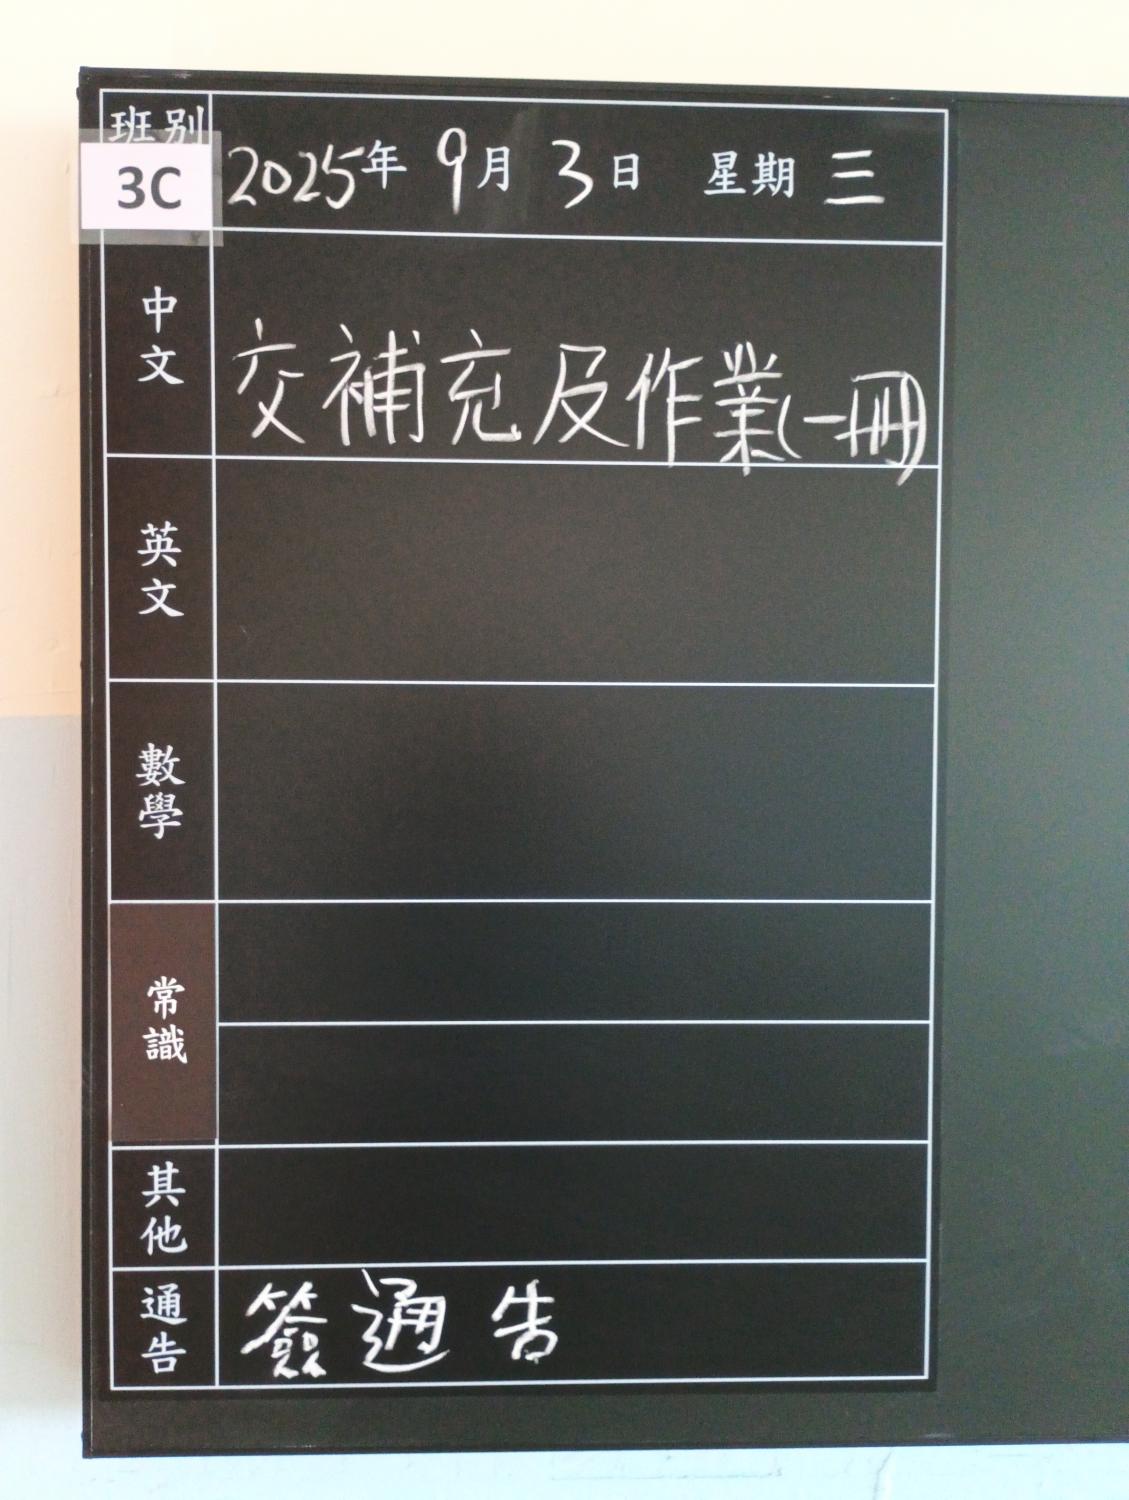 班別
3C
2025年 9月 3日 星期 三
中文
交補充及作業(一冊)
英文
數學
常識
其他
通告
簽通告